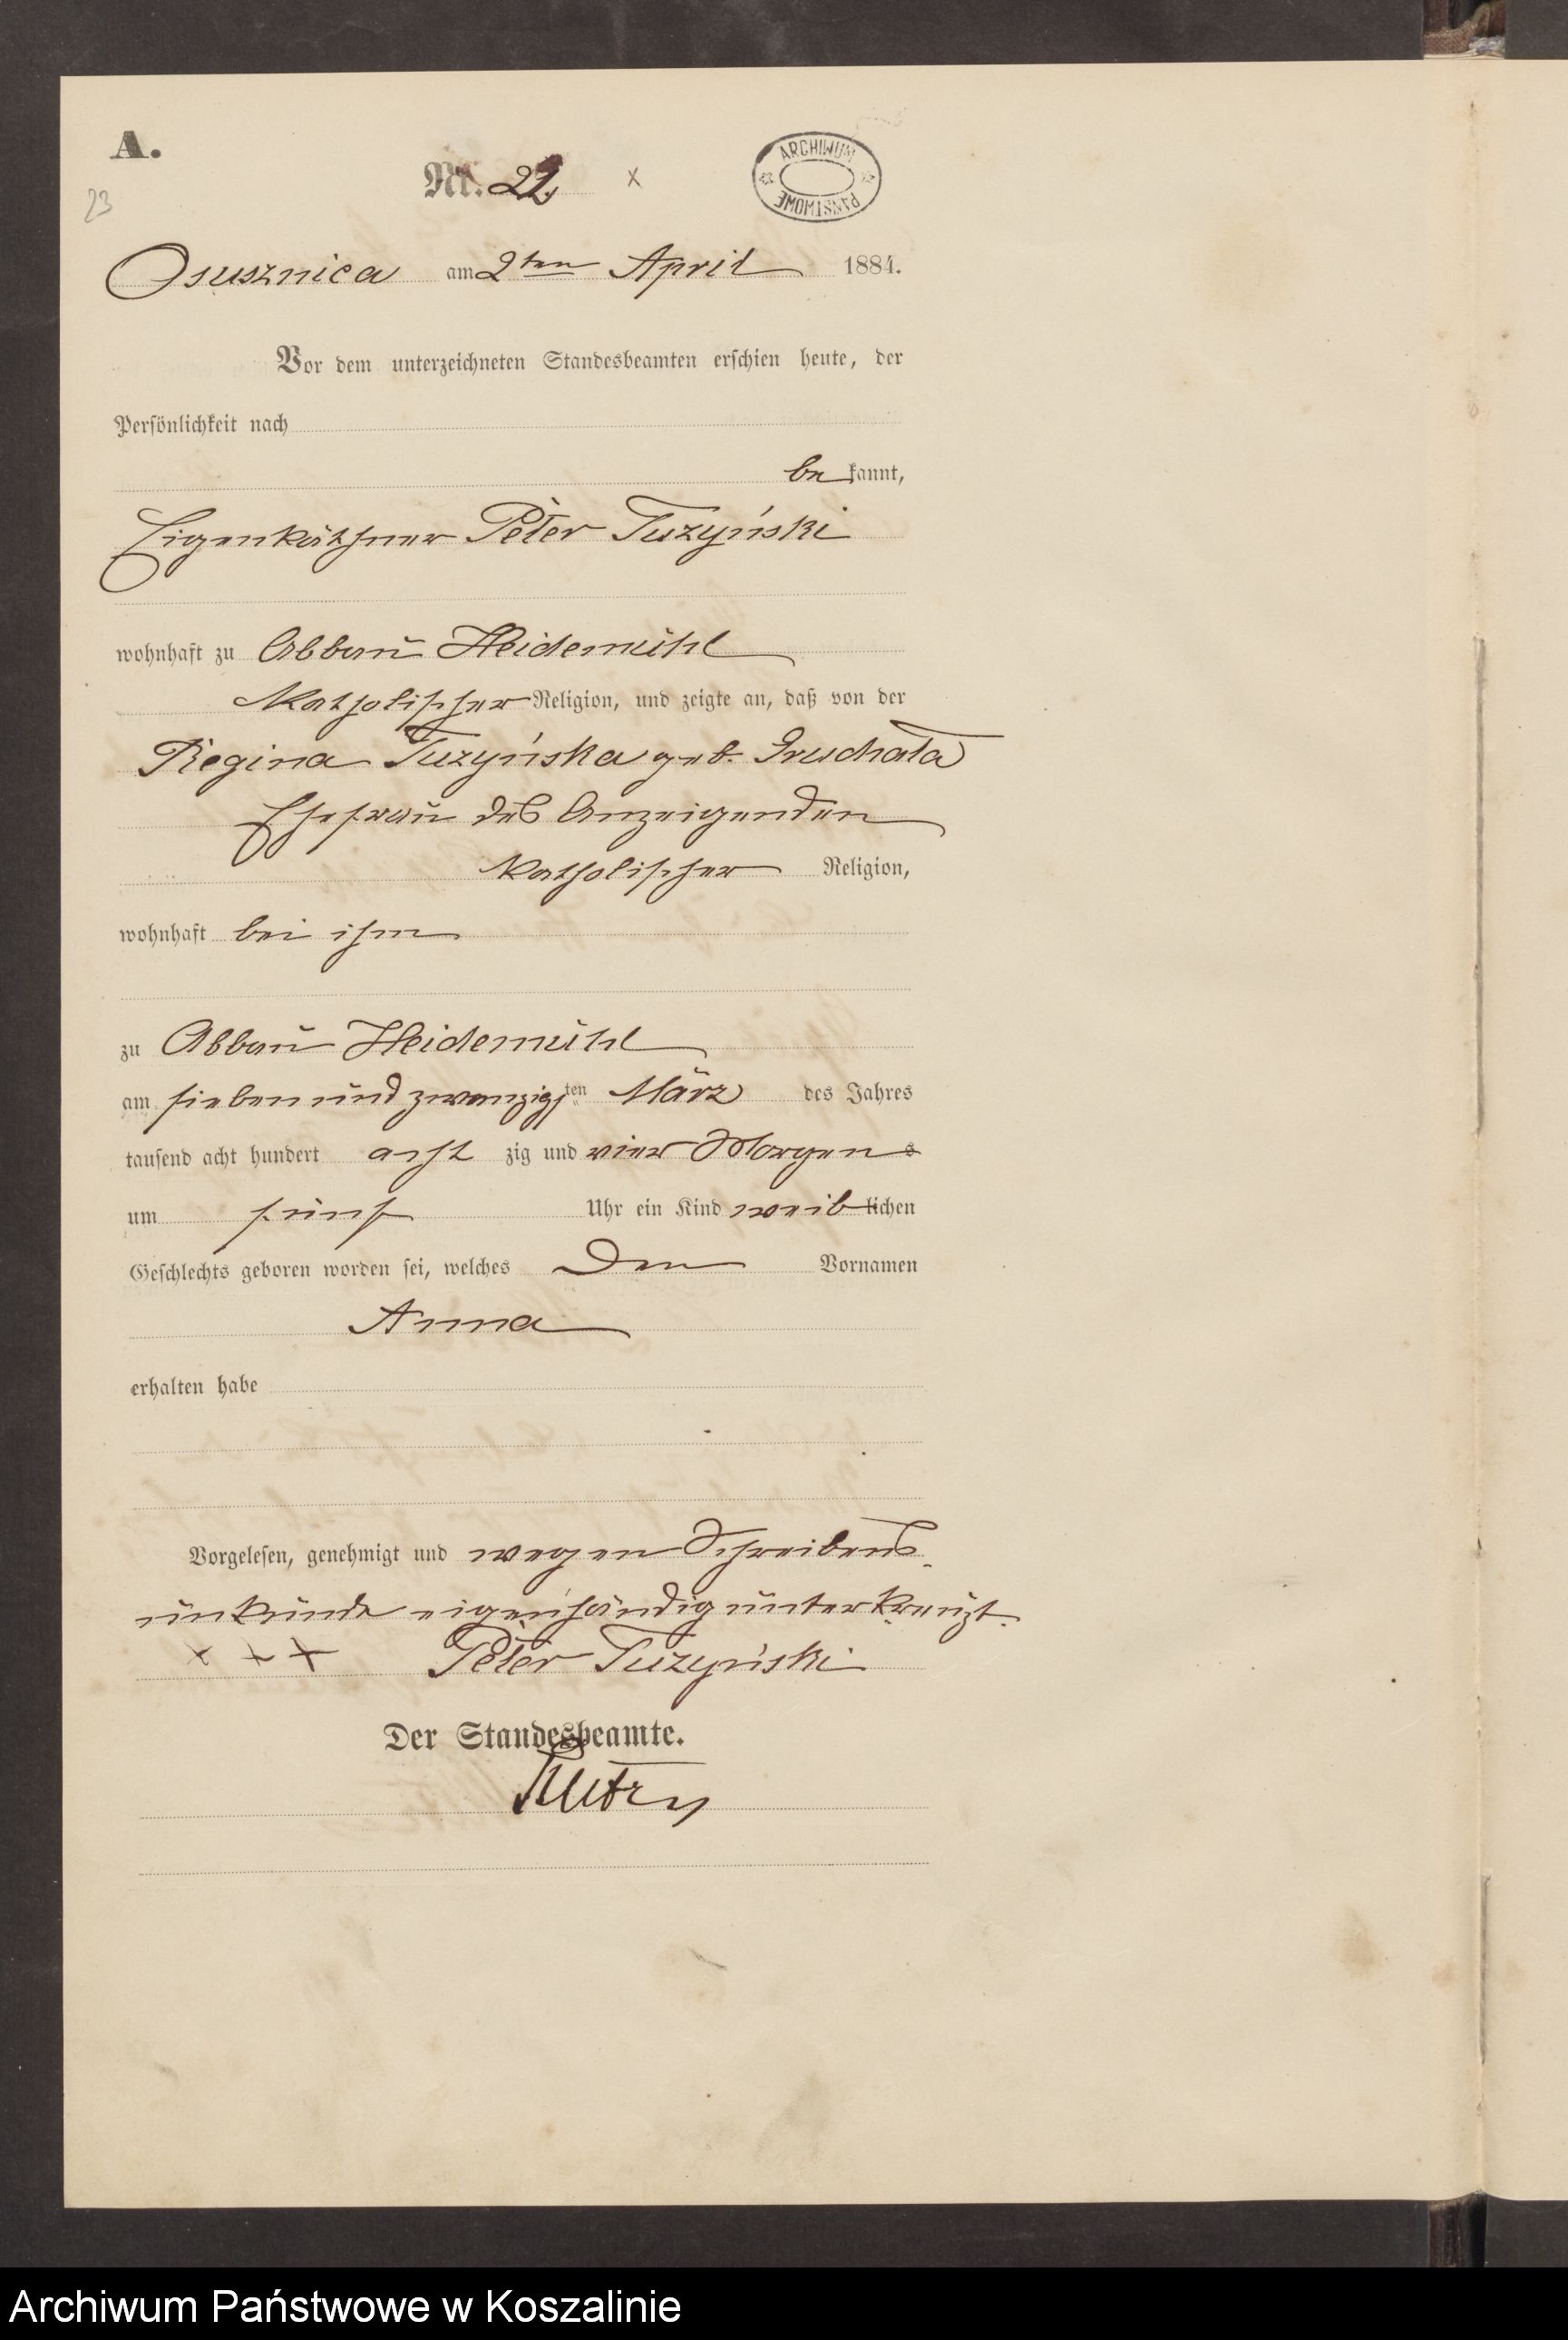 A.
Nr. 22.
x
ARCHIWUM PAŃSTWOWE
23
Osusznica am 2ten April 1884.
Vor dem unterzeichneten Standesbeamten erschien heute, der
Persönlichkeit nach
be kannt,
Eigenkäthner Peter Tuzyński
wohnhaft zu Abbau Heidemühl
Katholischer Religion, und zeigte an, daß von der
Regina Tuzyńska geb. Gruchała
Ehefrau des Anzeigenden
Katholischer Religion,
wohnhaft bei ihm
zu Abbau Heidemühl
am sieben und zwanzigsten März des Jahres
tausend acht hundert acht zig und vier Morgens
um fünf Uhr ein Kind weiblichen
Geschlechts geboren worden sei, welches den Vornamen
Anna
erhalten habe
Vorgelesen, genehmigt und wegen Schreibens-
unkunde eigenhändig unterkreuzt.
x x x Peter Tuzyński
Der Standesbeamte.
Archiwum Państwowe w Koszalinie